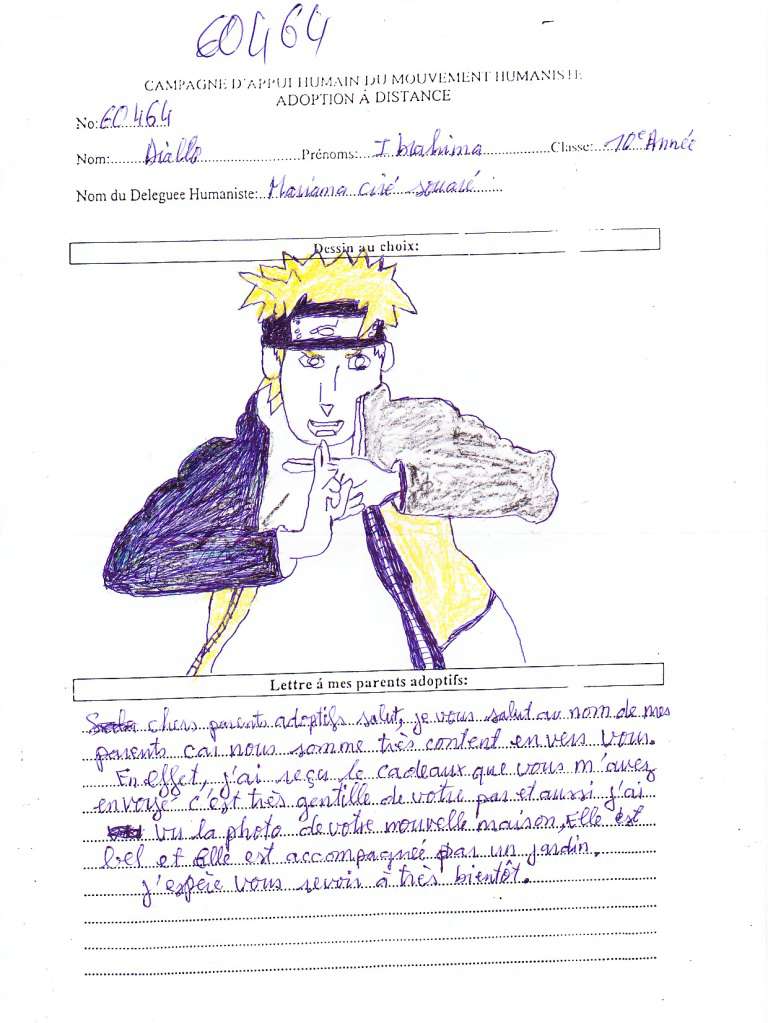 EO464
CAMPAGNE D'APPUI HUMAIN DU MOUVEMENT HUMANISTE
ADOPTION À DISTANCE
No: EO464
Nom: Diallo Prénoms: Ibrahima Classe: 10e Année
Nom du Deleguee Humaniste: Mariama ciré souaré
Dessin au choix:
Lettre á mes parents adoptifs:
chers parents adoptifs salut, je vous salut au nom de mes
parents cai nous somme très content envers vous.
En effet, j'ai reçu le cadeaux que vous m'avez
envoyé c'est très gentille de votre par et aussi j'ai
vu la photo de votre nouvelle maison, Elle est
bel et Elle est accompagneé par un jardin.
j'espère vous revoir à très bientôt.